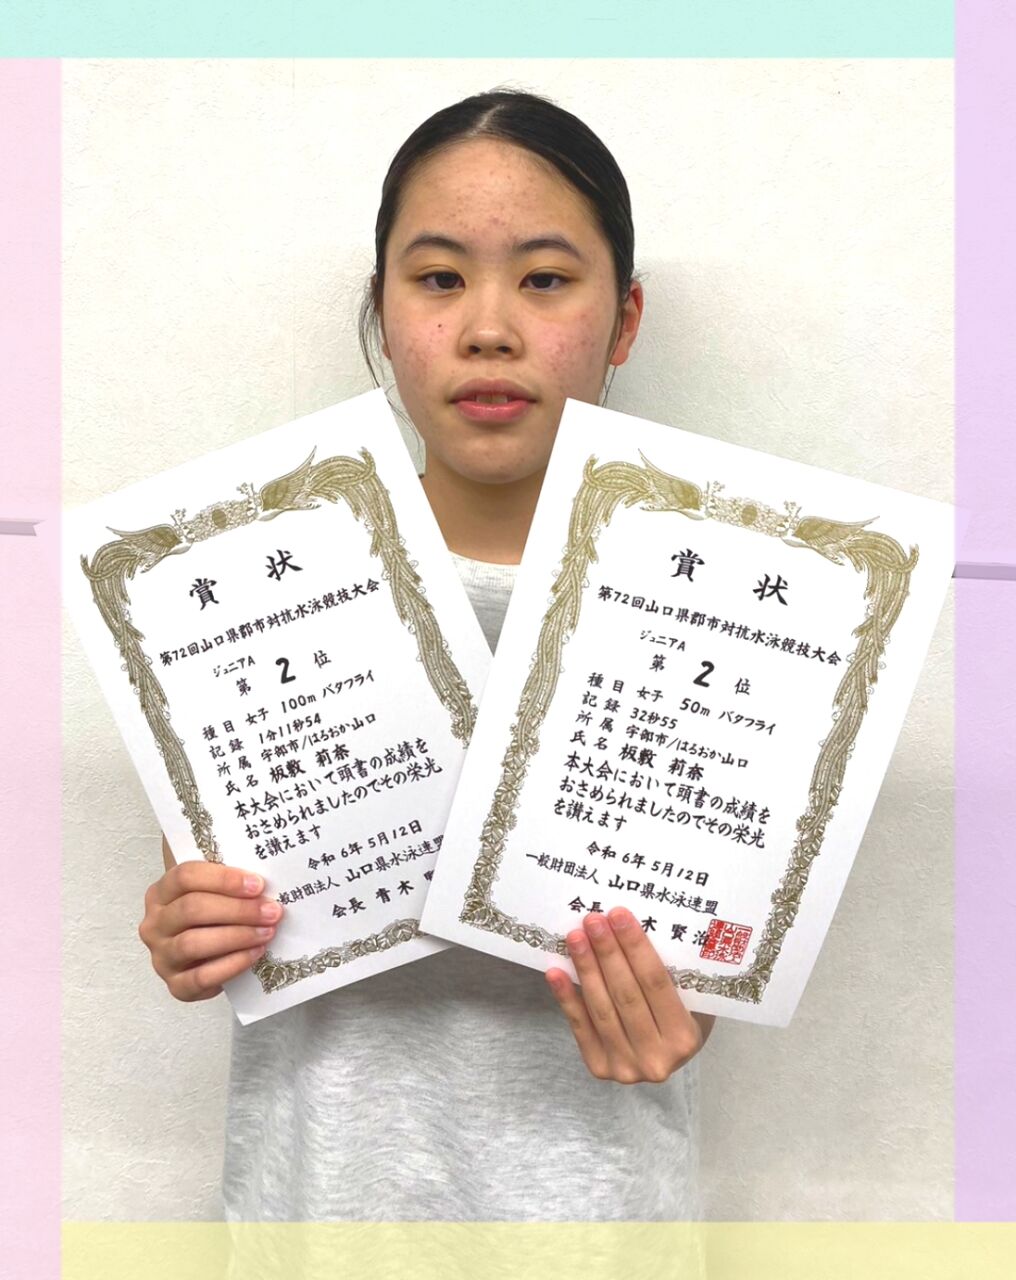 賞状
第72回山口県郡市対抗水泳競技大会
ジュニアA
第 2 位
種目 女子 100m バタフライ
記録 1分11秒54
所属 宇部市/はるおか山口
氏名 板敷 莉奈
本大会において頭書の成績を
おさめられましたのでその栄光
を讃えます
令和6年5月12日
一般財団法人 山口県水泳連盟
会長 青木
賞状
第72回山口県郡市対抗水泳競技大会
ジュニアA
第 2 位
種目 女子 50m バタフライ
記録 32秒55
所属 宇部市/はるおか山口
氏名 板敷 莉奈
本大会において頭書の成績を
おさめられましたのでその栄光
を讃えます
令和6年5月12日
一般財団法人 山口県水泳連盟
会長 木 賢治